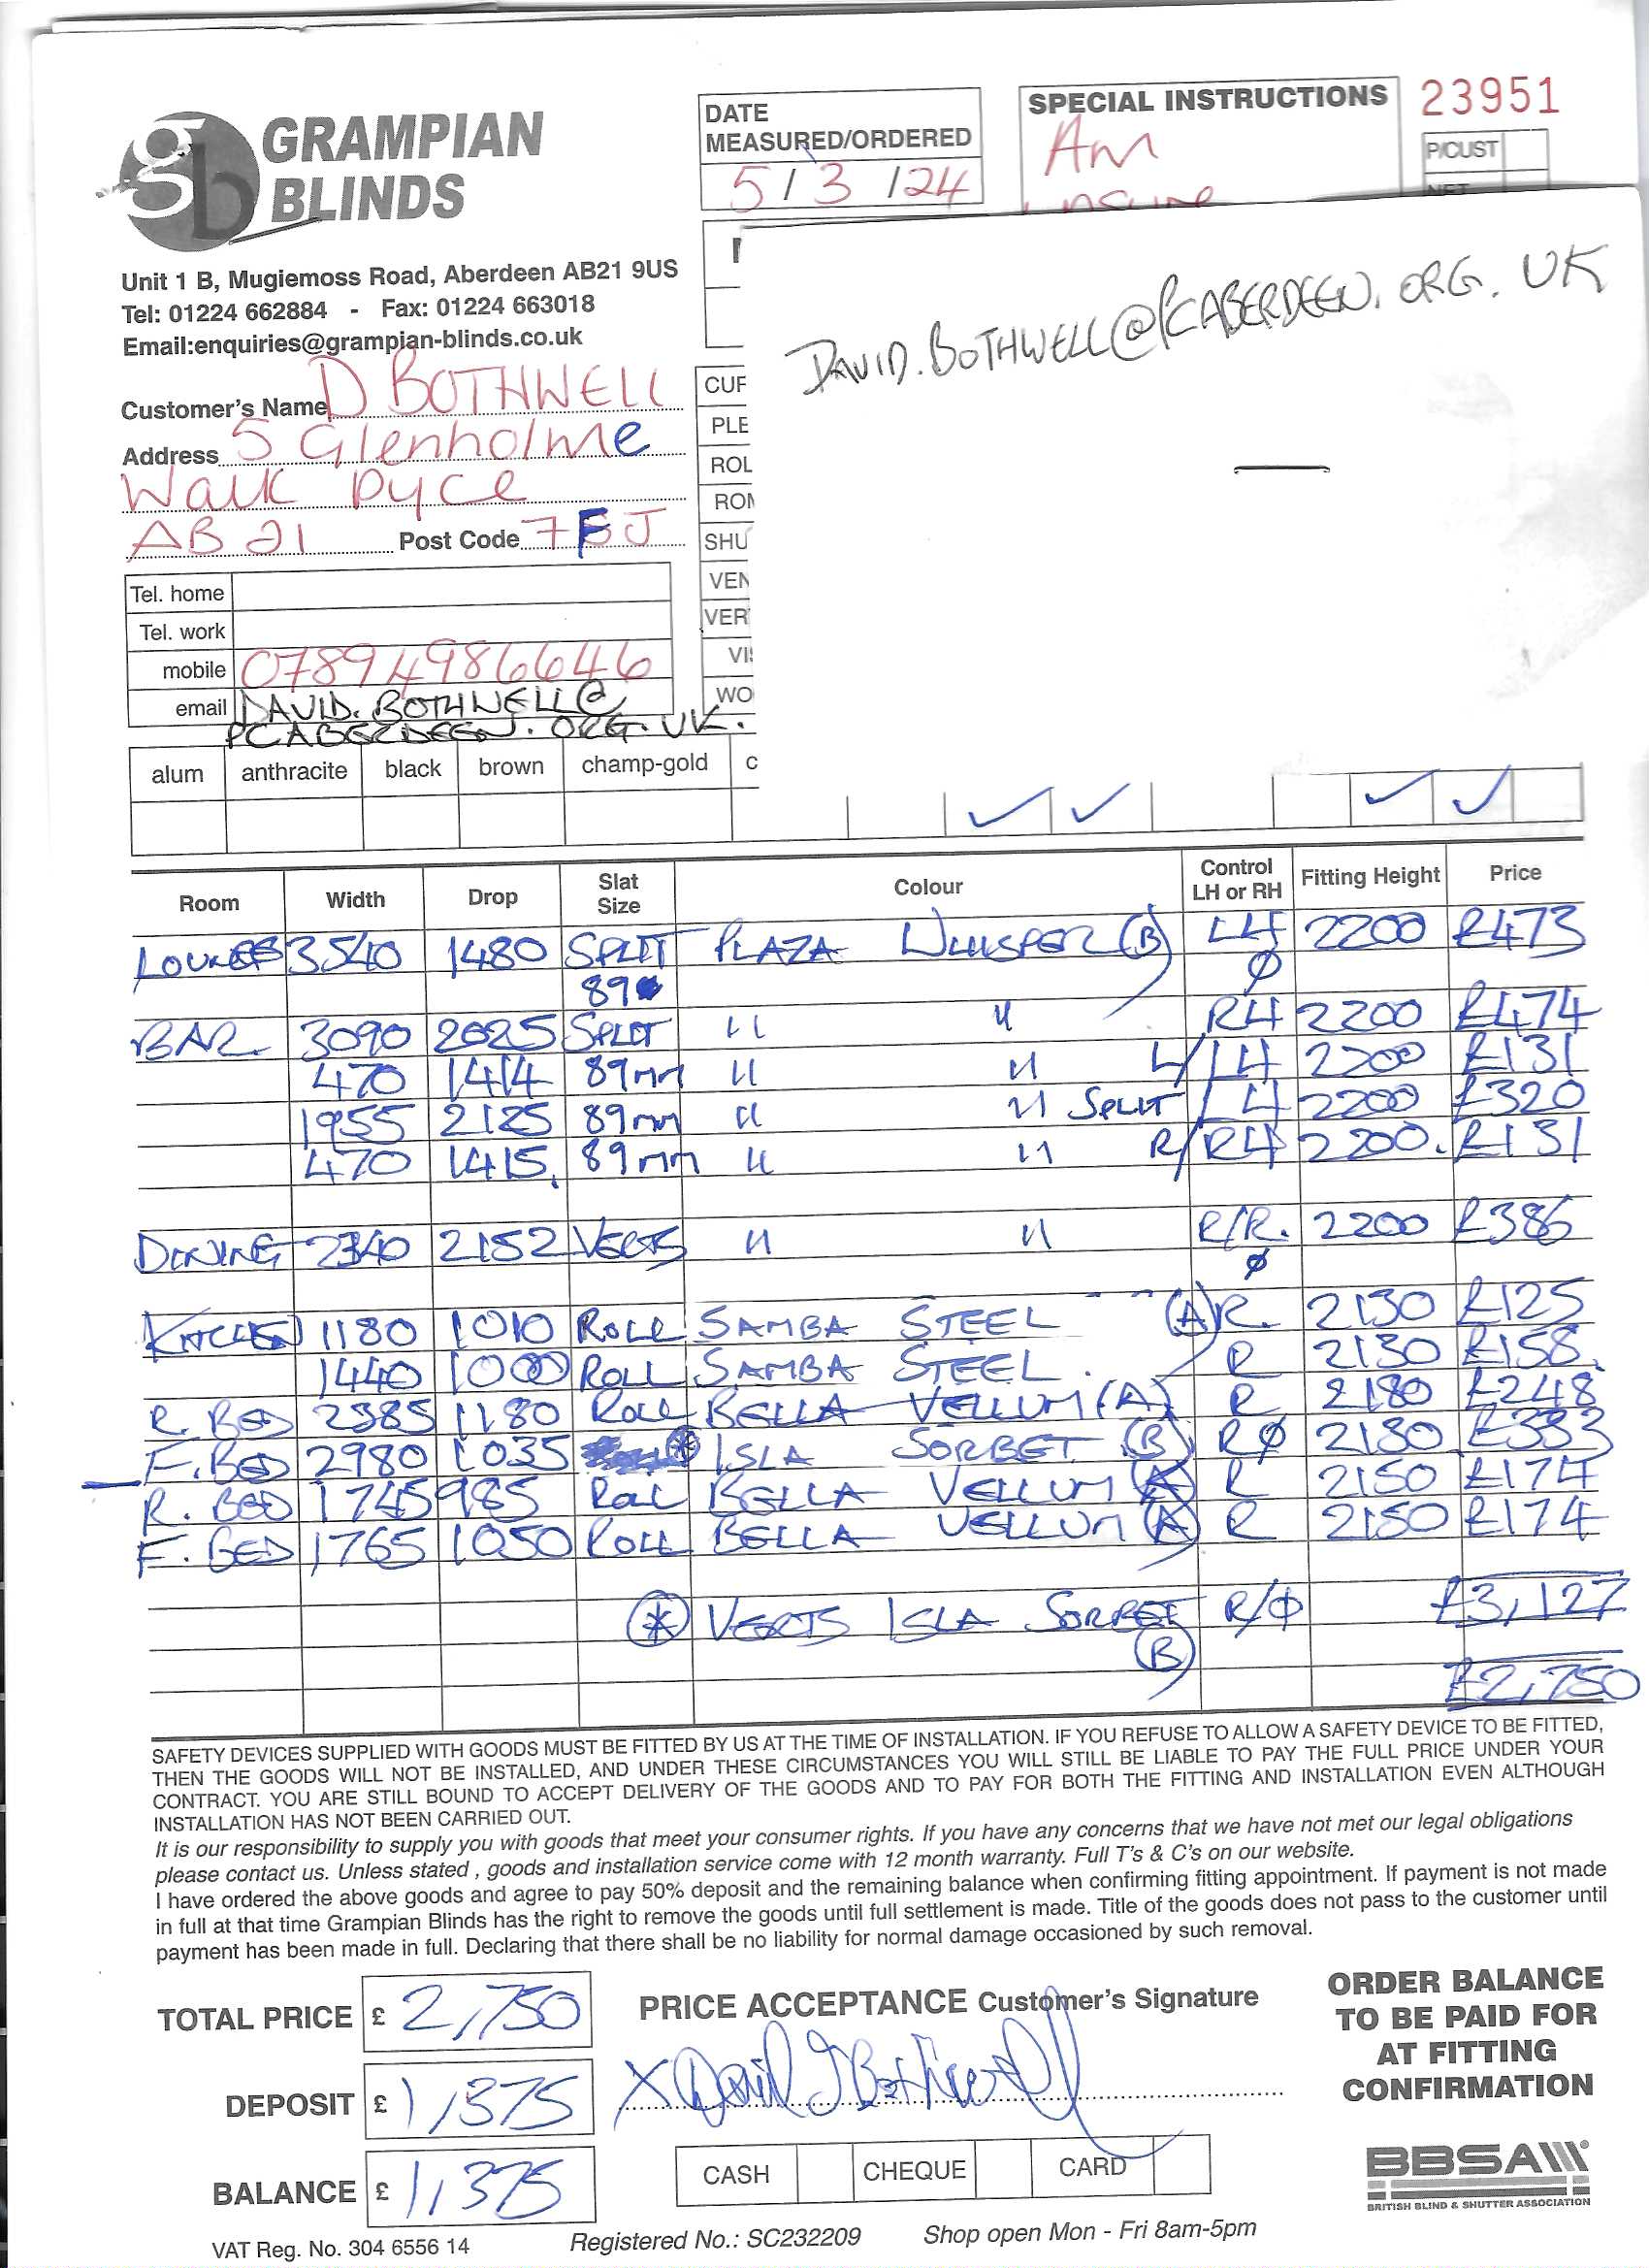 GRAMPIAN
BLINDS
Unit 1 B, Mugiemoss Road, Aberdeen AB21 9US
Tel: 01224 662884 - Fax: 01224 663018
Email:enquiries@grampian-blinds.co.uk
DATE
MEASURED/ORDERED
5 / 3 / 24
SPECIAL INSTRUCTIONS
Am
23951
P/CUST
DAVID.BOTHWELL@PCABERDEEN.ORG.UK
Customer's Name D BOTHWELL
Address 5 Glenholme
Walk Dyce
AB21 Post Code 7FJ
CUF
PLE
ROL
ROM
SHU
VEN
VER
VI
WO
Tel. home
Tel. work
mobile 07894986646
email DAVID.BOTHWELL@
PCABERDEEN.ORG.UK.
alum anthracite black brown champ-gold c
Room Width Drop Slat Size Colour Control LH or RH Fitting Height Price
LOUNGE 3540 1480 SPLIT PLAZA WHISPER (B) LH 2200 £473
89 Ø
BAR. 3090 2025 SPLIT " " RH 2200 £474
470 1414 89mm " " L/LH 2200 £131
1955 2125 89mm " " SPLIT/LH 2200 £320
470 1415. 89mm " " R/RH 2200. £131
DINING 2340 2152 VERTS " " R/R. 2200 £386
Ø
KITCHEN 1180 1010 ROLL SAMBA STEEL (A) R. 2130 £125
1440 1000 ROLL SAMBA STEEL. R 2130 £158.
R. BED 2385 1180 ROLL BELLA VELLUM (A) R 2180 £248
F. BED 2980 1035 * ISLA SORBET (B) RØ 2180 £333
R. BED 1745 985 ROLL BELLA VELLUM (A) R 2150 £174
F. BED 1765 1050 ROLL BELLA VELLUM (A) R 2150 £174
* VERTS ISLA SORBET R/Ø £3,127
(B)
£2,750
SAFETY DEVICES SUPPLIED WITH GOODS MUST BE FITTED BY US AT THE TIME OF INSTALLATION. IF YOU REFUSE TO ALLOW A SAFETY DEVICE TO BE FITTED,
THEN THE GOODS WILL NOT BE INSTALLED, AND UNDER THESE CIRCUMSTANCES YOU WILL STILL BE LIABLE TO PAY THE FULL PRICE UNDER YOUR
CONTRACT. YOU ARE STILL BOUND TO ACCEPT DELIVERY OF THE GOODS AND TO PAY FOR BOTH THE FITTING AND INSTALLATION EVEN ALTHOUGH
INSTALLATION HAS NOT BEEN CARRIED OUT.
It is our responsibility to supply you with goods that meet your consumer rights. If you have any concerns that we have not met our legal obligations
please contact us. Unless stated , goods and installation service come with 12 month warranty. Full T's & C's on our website.
I have ordered the above goods and agree to pay 50% deposit and the remaining balance when confirming fitting appointment. If payment is not made
in full at that time Grampian Blinds has the right to remove the goods until full settlement is made. Title of the goods does not pass to the customer until
payment has been made in full. Declaring that there shall be no liability for normal damage occasioned by such removal.
TOTAL PRICE £ 2,750
DEPOSIT £ 1,375
BALANCE £ 1,375
PRICE ACCEPTANCE Customer's Signature
X David J Bothwell
CASH CHEQUE CARD
ORDER BALANCE
TO BE PAID FOR
AT FITTING
CONFIRMATION
BBSA
BRITISH BLIND & SHUTTER ASSOCIATION
VAT Reg. No. 304 6556 14
Registered No.: SC232209
Shop open Mon - Fri 8am-5pm